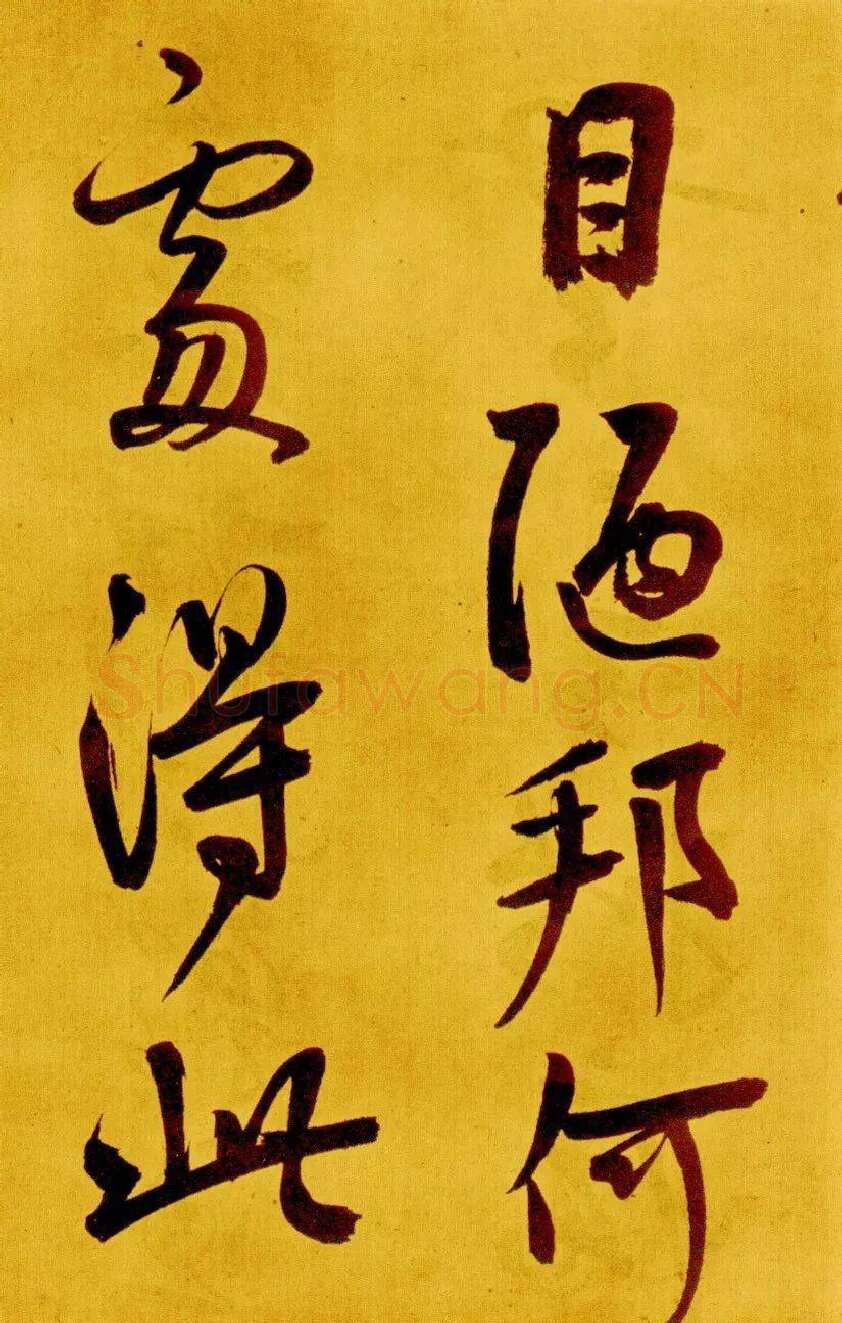 目陋邦何
處得此
Shufawang.CN